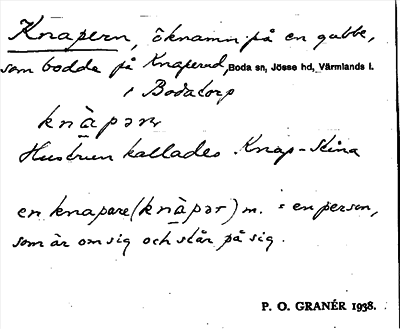 Knapern, öknamn på en gubbe,
som bodde på Knaperud, Boda sn, Jösse hd, Värmlands l.
i Boda torp
knàpəṇ
Hustrun kallades Knap-Stina
en knapare (knàpər) m. = en person,
som är om sig och slår på sig.
P. O. GRANÉR 1938.